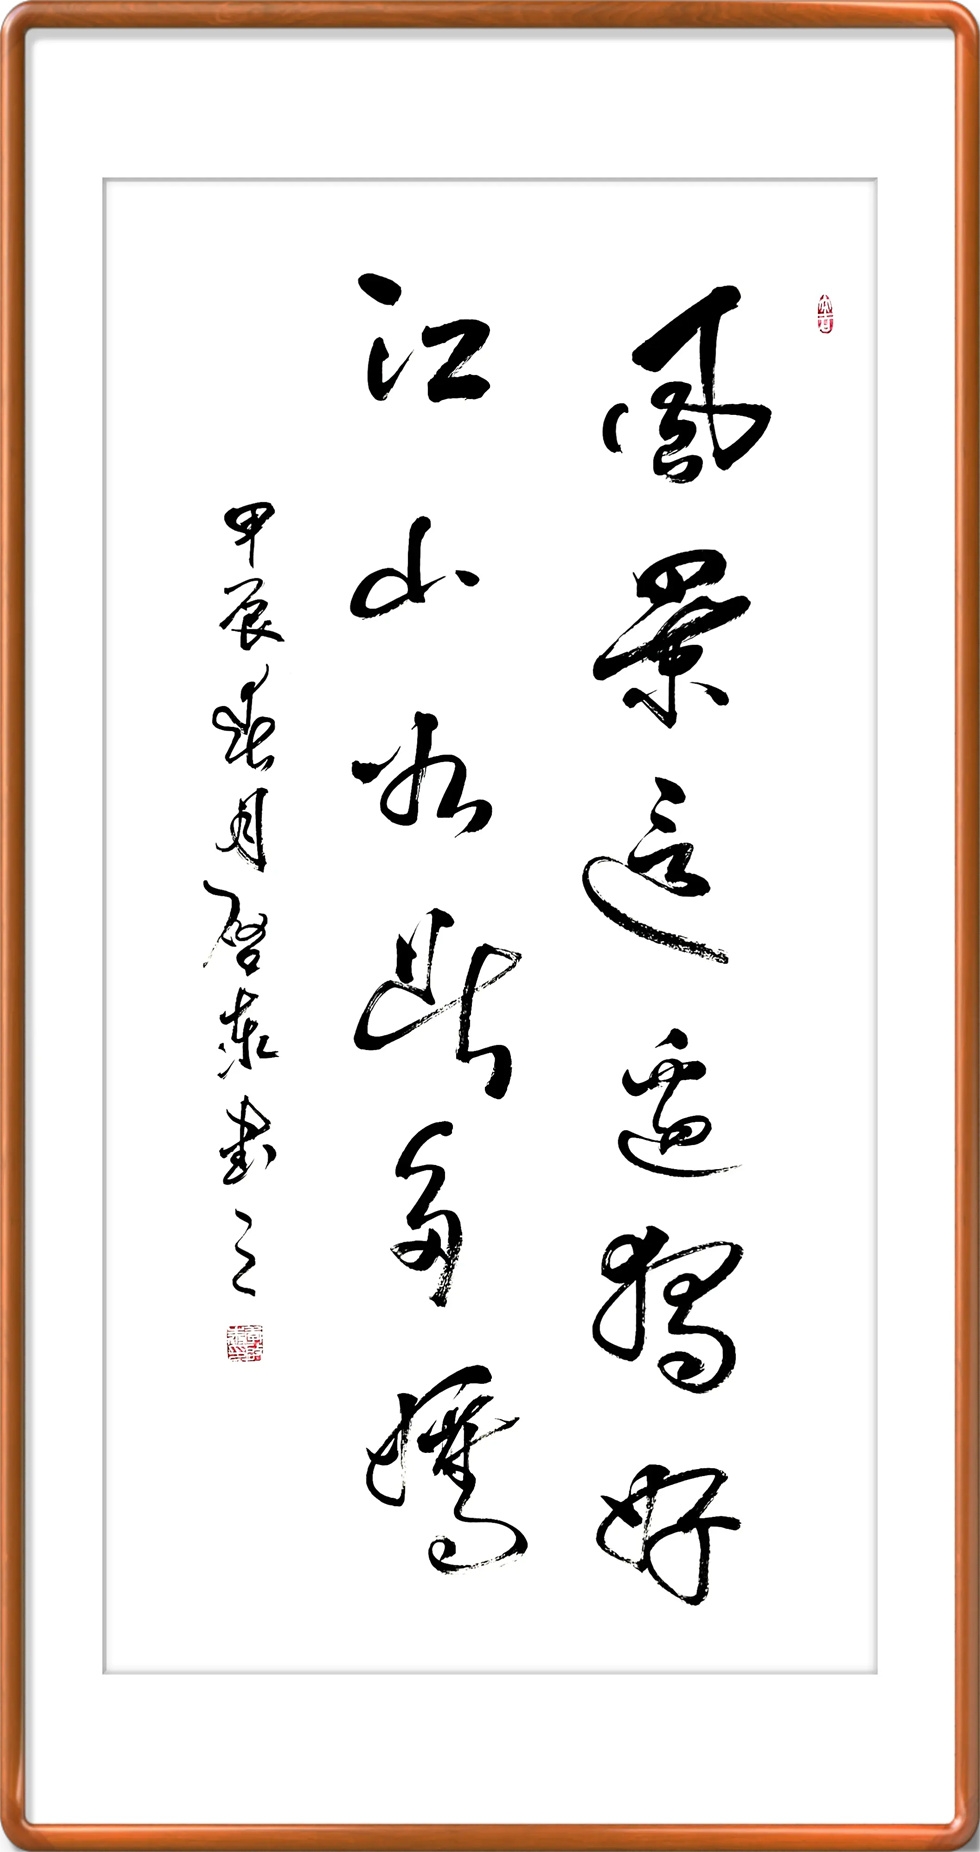 風景這邊獨好
江山如此多嬌
甲辰春月啓東書之